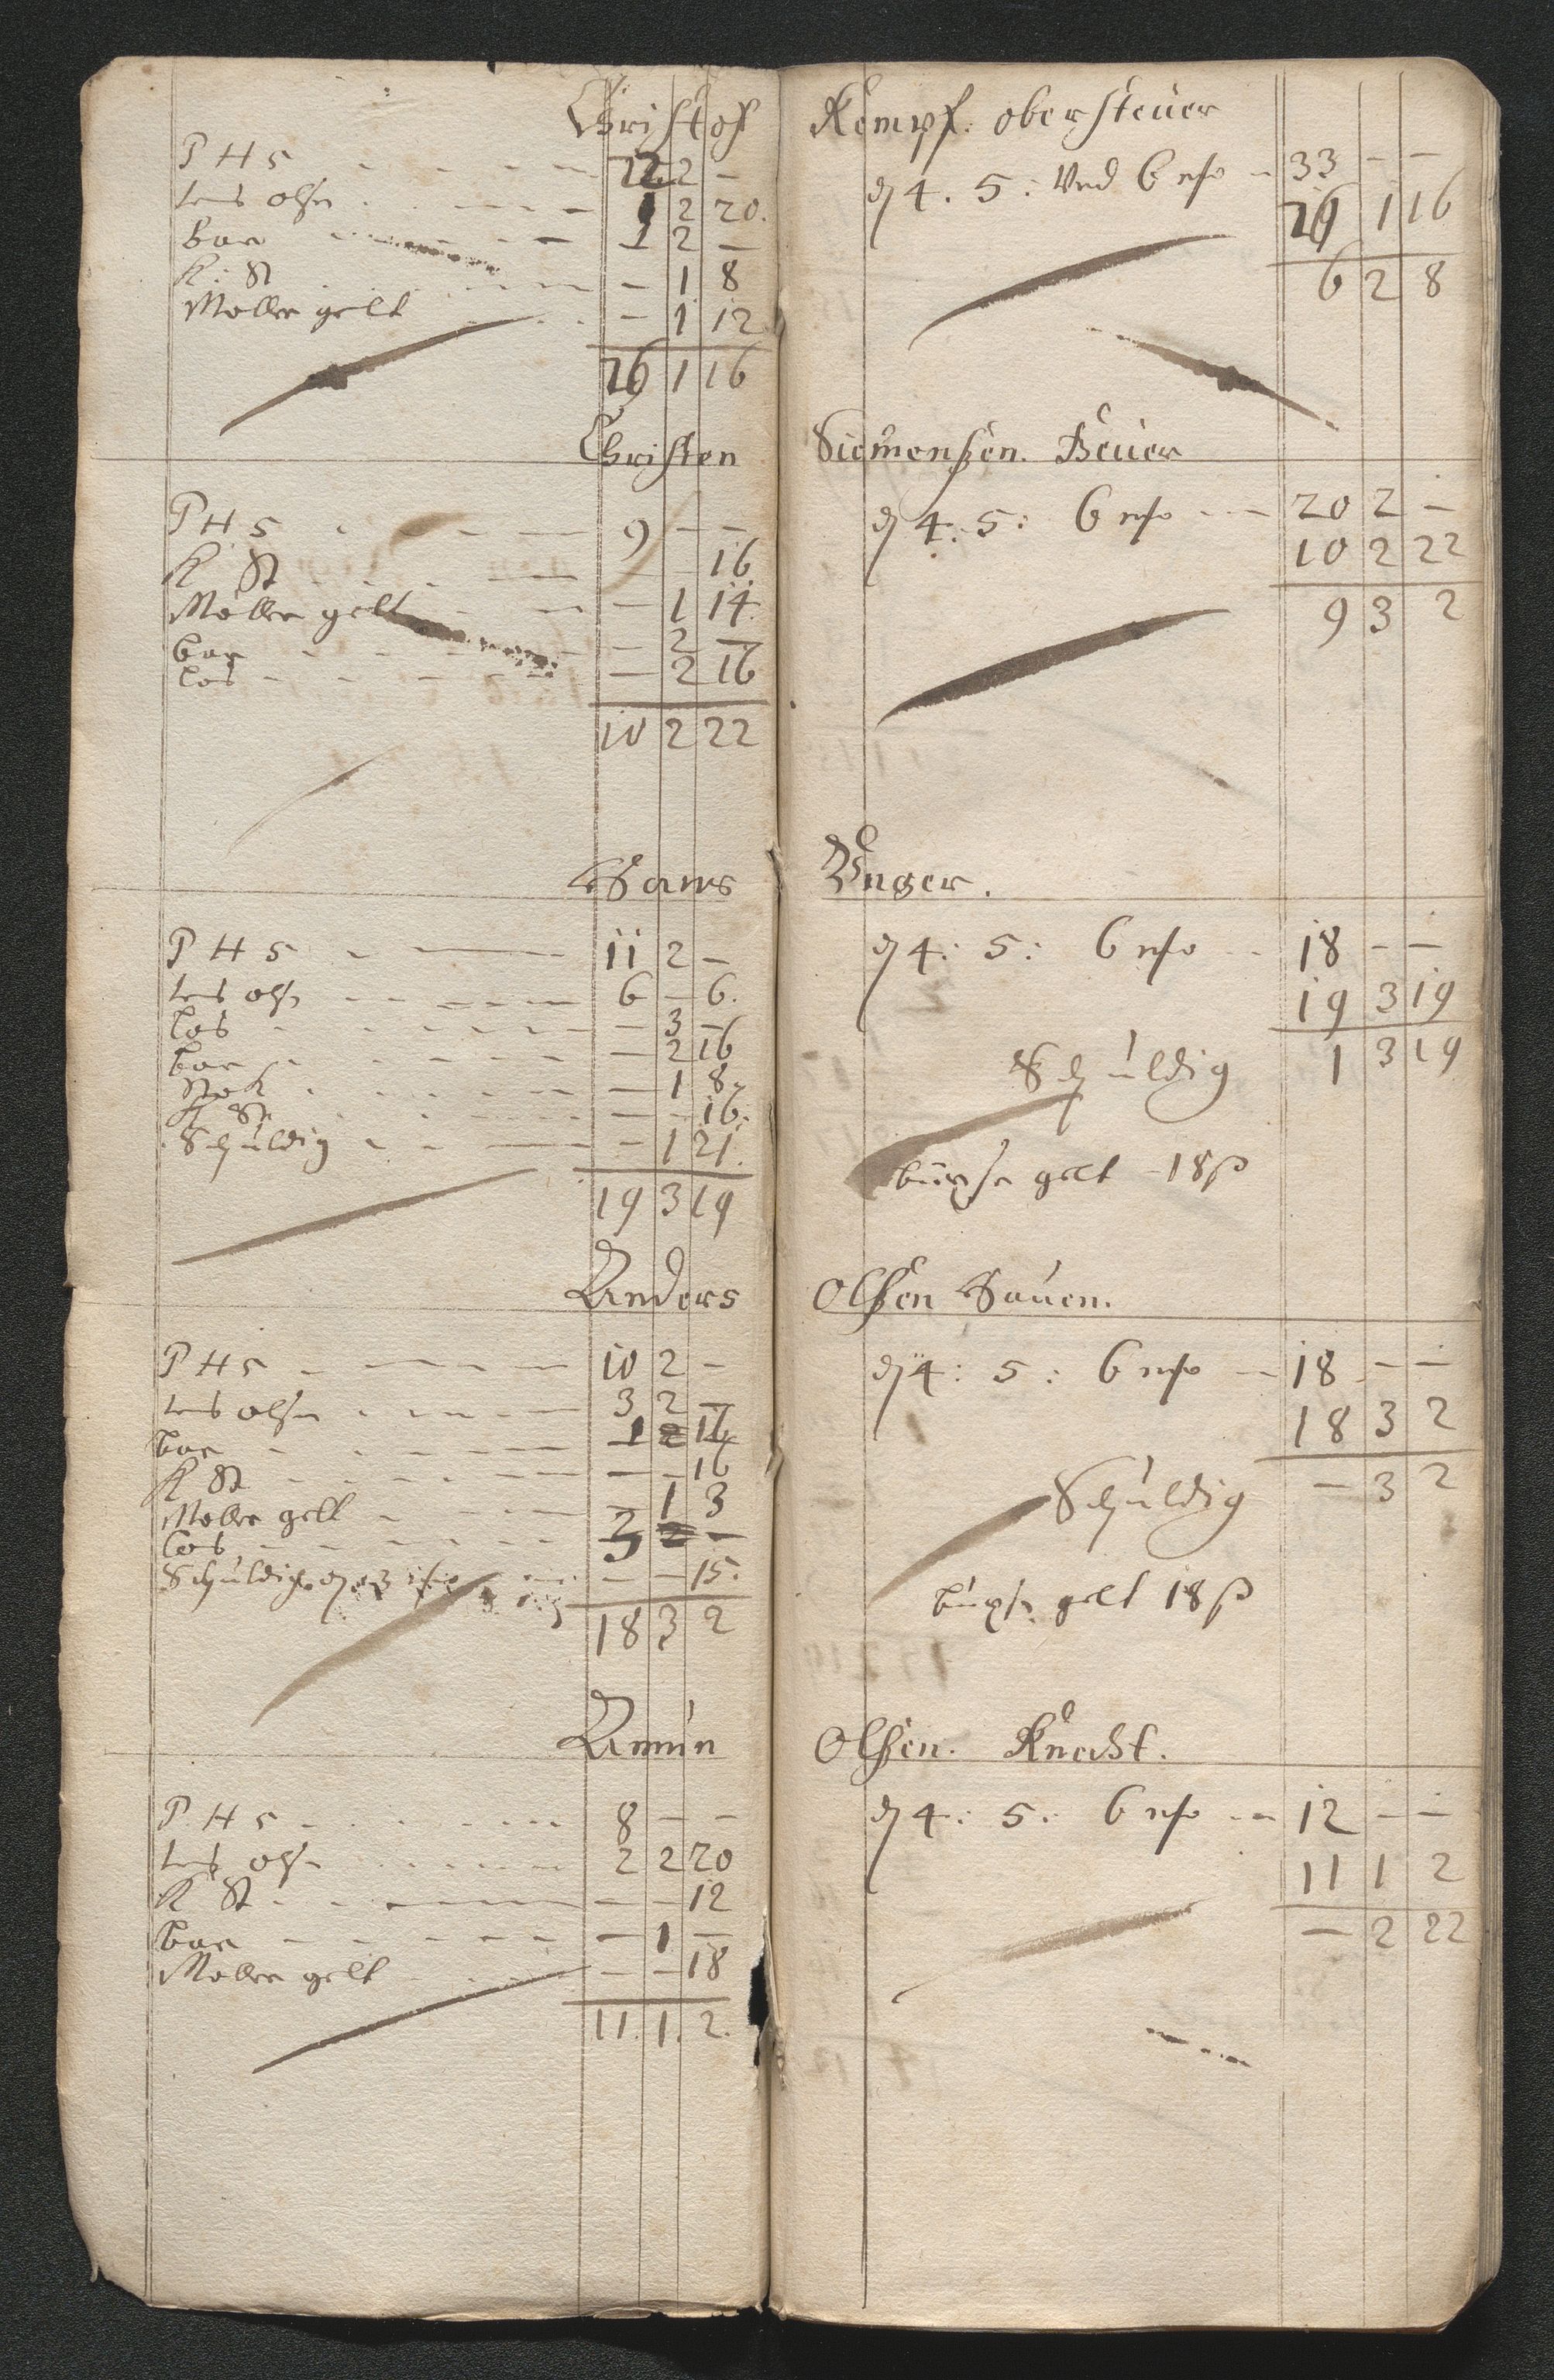 Christof Kempf: obersteuer
P H S - - - 22 2 -
1 2 20.
bar - - - 1 2 -
K: St - - - - 1 8
Møller gelt - - - 1 12
26 1 16
d 4. 5: Vnd 6 - 33 - -
26 1 16
6 2 8
Christen Siemensen. Beuer
P H S - - - 9 - -
K St - - - - - 16
Møller gelt - - - 1 14
bar - - - - 2 -
Los - - - - 2 16
10 2 22
d 4. 5: 6 - - 20 2 -
10 2 22
9 3 2
Hans Vnger.
P H S - - - 11 2 -
- - - 6 - 6.
Los - - - - 3 -
bar - - - - 2 16
- - - - 1 8
K St - - - - - 16.
Schuldig - - - - 1 21.
19 3 19
d 4: 5: 6 - - 18 - -
19 3 19
Schuldig 1 3 19
gelt - 18 ß
Anders Olsen Hauen.
P H S - - - 10 2 -
- - - 3 2 -
bar - - - 1 2 16
K St - - - - - 16
Møller gelt - - - 1 3
Los - - - 3 2 -
Schuldig - - 15.
18 3 2
d 4: 5: 6 - - 18 - -
18 3 2
Schuldig - 3 2
gelt 18 ß
Amun Olsen. Knecht.
P H S - - - 8 - -
- - - 2 2 20
K St - - - - - 12
bar - - - - 1 -
Møller gelt - - - - 18
11. 1. 2.
d 4: 5: 6 - - 12 - -
11 1 2
- 2 22